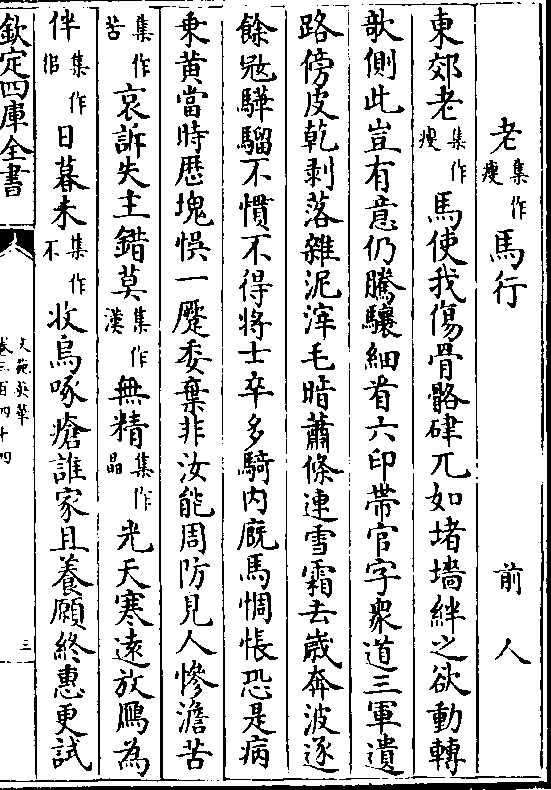 老集作瘦馬行　前人
東郊老集作瘦馬使我傷骨骼硉兀如堵墻絆之欲動轉
欹側此豈有意仍騰驤細看六印帶官字衆道三軍遺
路傍皮乾剥落雜泥滓毛暗蕭條連雪霜去歲奔波逐
餘㓂驊騮不慣不得將士卒多騎内厩馬惆悵恐是病
乗黄當時歴塊悞一蹷委棄非汝能周防見人慘澹苦
集作苦哀訴失主錯莫集作漠無精集作晶光天寒遠放鴈為
伴集作侣日暮未集作不收烏啄瘡誰家且養願終惠更試
欽定四庫全書
文苑英華
卷三百四十四
三